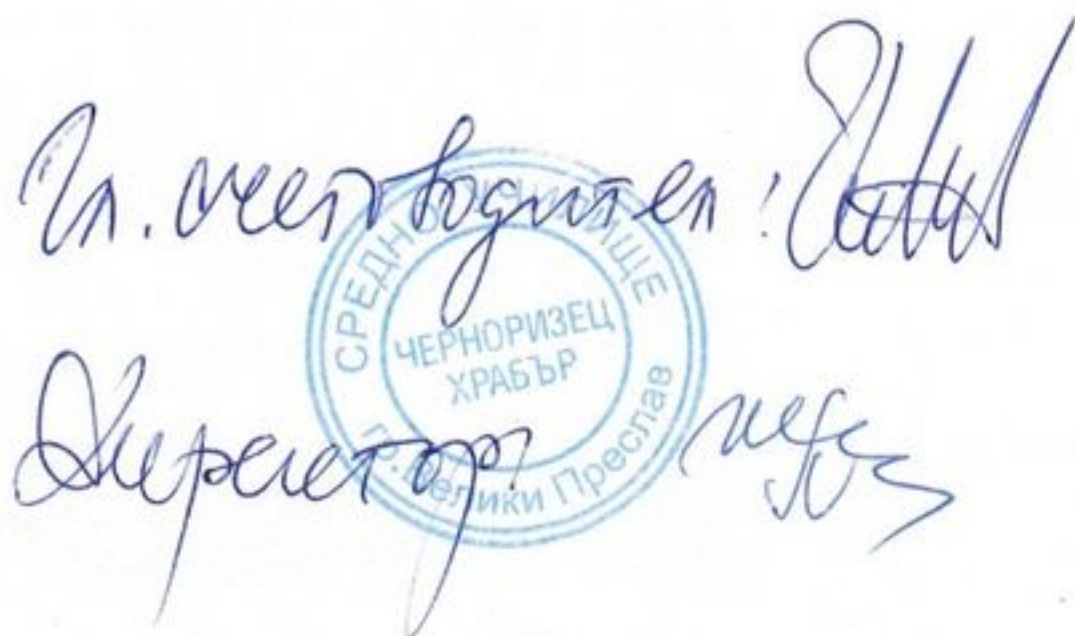 Гл. счетоводител:
СРЕДНО УЧИЛИЩЕ
ЧЕРНОРИЗЕЦ
ХРАБЪР
гр. Велики Преслав
Директор: